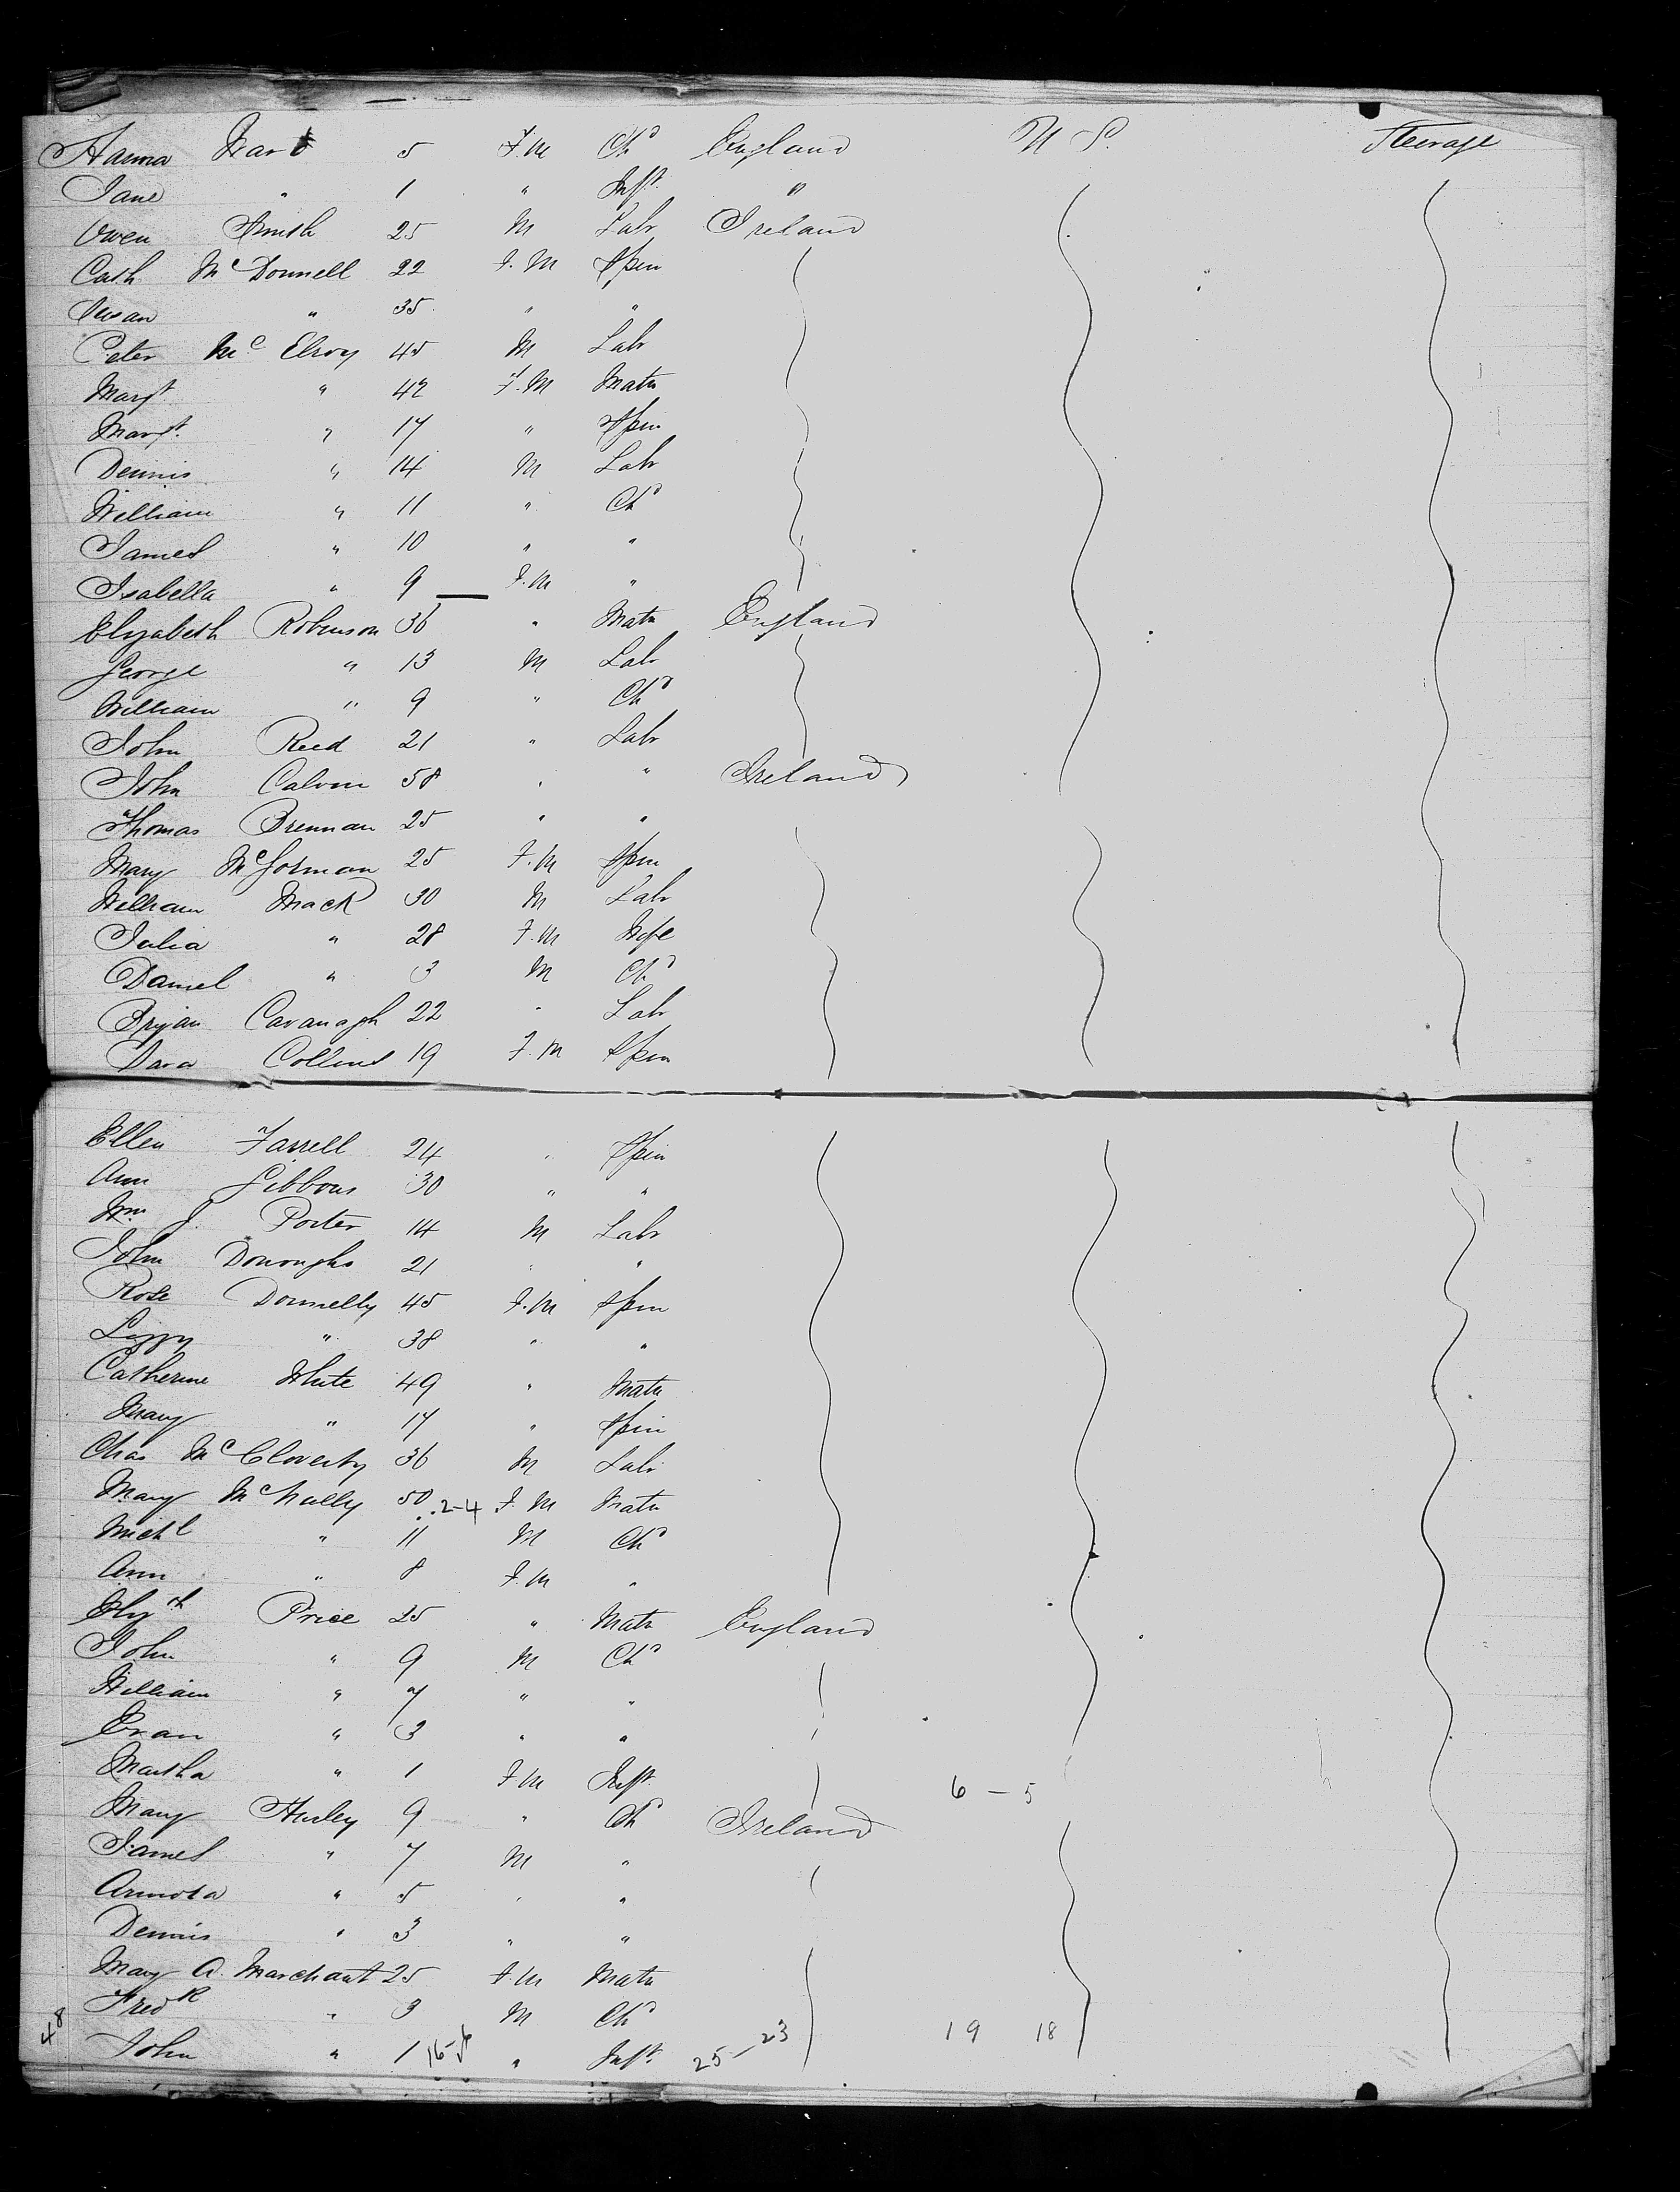 Hanna Wart 5 F.M Chd England U S. Steerage
Jane " 1 " Inft. "
Owen Smith 25 M Labr Ireland
Cath McDonnell 22 F.M Spin
Susan " 35 " "
Peter McElroy 45 M Labr
Margt " 42 F.M Matn
Margt. " 17 " Spin
Dennis " 14 M Labr
William " 11 " Chd
James " 10 " "
Isabella " 9 F.M "
Elizabeth Robinson 36 " Matn England
George " 13 M Labr
William " 9 " Chd
John Reed 21 " Labr
John Calvin 58 " " Ireland
Thomas Brennan 25 " "
Mary McGorman 25 F.M Spin
William Mack 30 M Labr
Julia " 28 F.M Wife
Daniel " 3 M Chd
Bryan Cavanagh 22 " Labr
Sara Collins 19 F.M Spin
Ellen Farrell 24 " Spin
Ann Gibbons 30 " "
Wm J. Porter 14 M Labr
John Donoughs 21 " "
Rose Donnelly 45 F.M Spin
Lizzy " 38 " "
Catherine White 49 " Matn
Mary " 17 " Spin
Chas McCloverty 36 M Labr
Mary McNally 50 2-4 F.M Matn
Michl " 11 M Chd
Ann " 8 F.M "
Elizth Price 25 " Matn England
John " 9 M Chd
William " 7 " "
Evan " 3 " "
Martha " 1 F.M Inft. 6 - 5
Mary Hurley 9 " Chd Ireland
James " 7 M "
" 5 " "
Dennis " 3 " "
Mary A. Marchant 25 F.M Matn
Fredk " 3 M Chd
48 John " 1 16- " Inft. 25-23 19 18